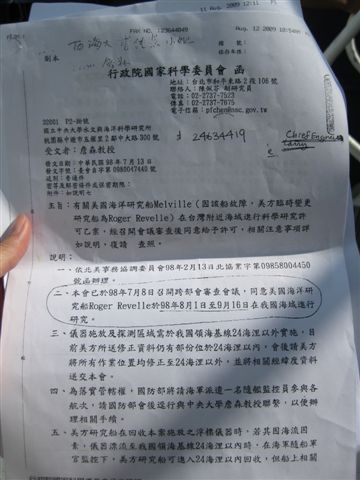 FAX NO. 123644049
11 Aug. 2009 12:11
Aug. 12 2009
副本
檔 號：
保存年限：
行政院國家科學委員會 函
地址：台北市和平東路 2 段 106 號
電話：02-2737-7523
傳真：02-2737-7675
32001 P2-掛號
國立中央大學水文與海洋科學研究所
桃園縣中壢市五權里 2 鄰中大路 300 號
24634419
Chief Engineer
Larry
受文者：詹森教授
發文日期：中華民國 98 年 7 月 13 日
發文字號：臺會自字第 0980047440 號
速別：普通件
密等及解密條件或保密期限：
附件：如說明七
主旨：有關美國海洋研究船Melville（因該船故障，美方臨時變更
研究船為Roger Revelle）在台灣附近海域進行科學研究許
可乙案，經召開會議審查後同意給予許可，相關注意事項詳
如說明，復請 查照。
說明：
一、依北美事務協調委員會98年2月13日北協業字第09858004450
號函辦理。
二、本會已於98年7月8日召開跨部會審查會議，同意美國海洋研
究船Roger Revelle於98年8月1日至9月16日在我國海域進行
研究。
三、儀器施放及探測區域需於我國領海基線24海浬以外實施，目
前美方所送修正資料仍有部份位於24海浬以內，會後請美方
將所有作業位置均修正至24海浬以外，並將相關經緯度資料
送交本會。
四、為落實管轄權，國防部將請海軍派遣一名隨艦監控員參與各
航次，請國防部會後逕行與中央大學詹森教授聯繫，以便辦
理相關手續。
五、美方研究船在回收本案施放之浮標儀器時，若其因海流因
素，儀器漂流至我國領海基線24海浬以內時，在海軍隨船軍
官監控下，美方研究船可進入24海浬以內回收，但船上相關